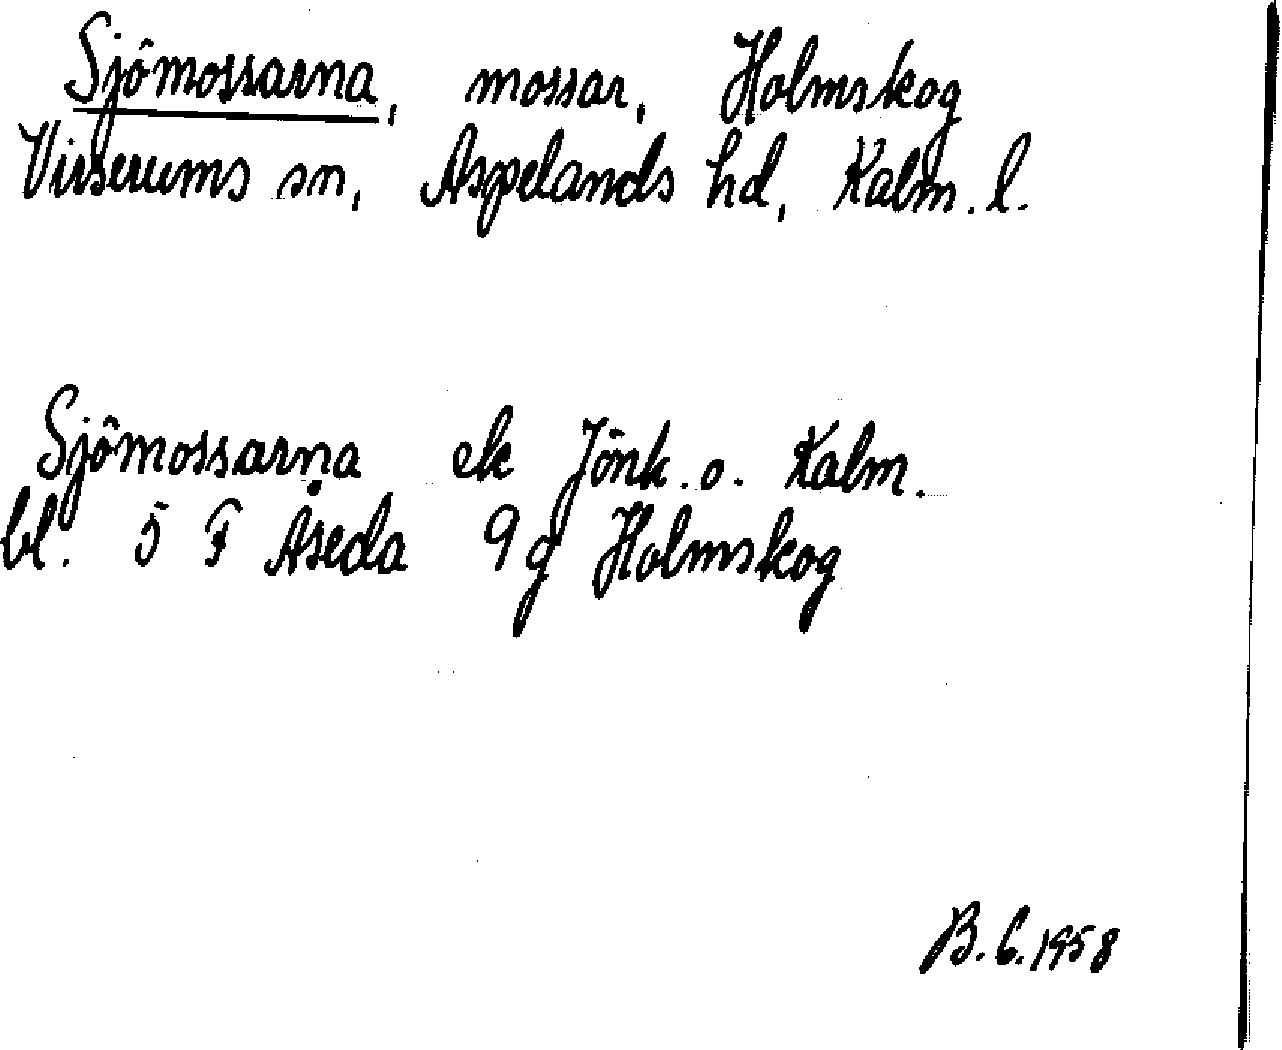 Sjömossarna, mossar, Holmskog
Virserums sn, Aspelands hd, Kalm. l.
Sjömossarna ek Jönk. o. Kalm.
bl. 5 F Åseda 9 g Holmskog
B. 6. 1958